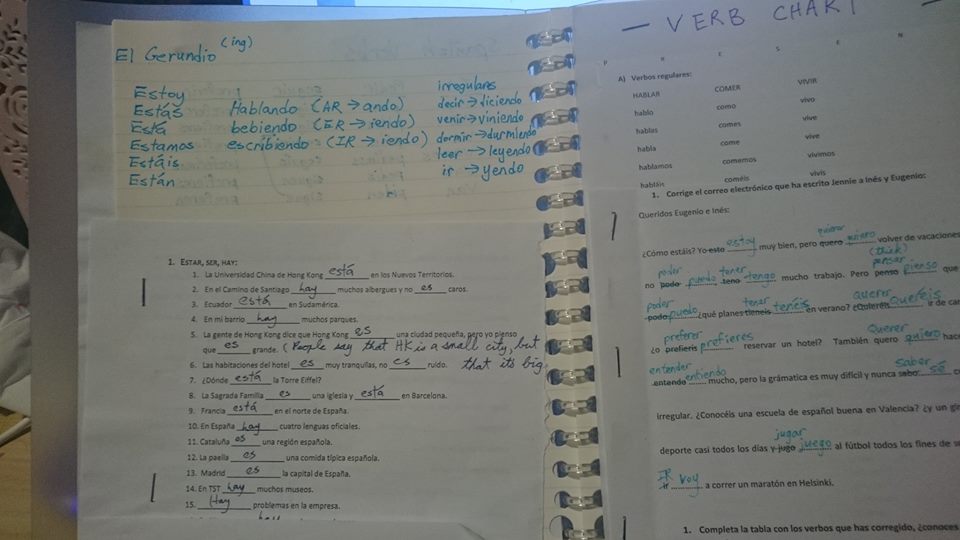 El Gerundio (ing)
Estoy
Estás
Está
Estamos
Estáis
Están
Hablando (AR → ando)
bebiendo (ER → iendo)
escribiendo (IR → iendo)
irregulars
decir → diciendo
venir → viniendo
dormir → durmiendo
leer → leyendo
ir → yendo
1. ESTAR, SER, HAY:
1. La Universidad China de Hong Kong está en los Nuevos Territorios.
2. En el Camino de Santiago hay muchos albergues y no es caros.
3. Ecuador está en Sudamérica.
4. En mi barrio hay muchos parques.
5. La gente de Hong Kong dice que Hong Kong es una ciudad pequeña, pero yo pienso
que es grande. (People say that HK is a small city, but
that it's big.
6. Las habitaciones del hotel es muy tranquilas, no es ruido.
7. ¿Dónde está la Torre Eiffel?
8. La Sagrada Familia es una iglesia y está en Barcelona.
9. Francia está en el norte de España.
10. En España hay cuatro lenguas oficiales.
11. Cataluña es una región española.
12. La paella es una comida típica española.
13. Madrid es la capital de España.
14. En TST hay muchos museos.
15. Hay problemas en la empresa.
— VERB CHART —
P R E S E N
A) Verbos regulares:
HABLAR COMER VIVIR
hablo como vivo
hablas comes vive
habla come vive
hablamos comemos vivimos
habláis coméis vivís
1. Corrige el correo electrónico que ha escrito Jennie a Inés y Eugenio:
Queridos Eugenio e Inés:
querer
¿Cómo estáis? Yo esto estoy muy bien, pero quero quiero volver de vacaciones
(think)
poder tener pensar
no podo puedo teno tengo mucho trabajo. Pero penso pienso que
poder tener querer
podo puedo ¿qué planes tieneis tenéis en verano? ¿Quieréis queréis ir de
preferir Querer
¿o prefieris prefieres reservar un hotel? También quero quiero
entender saber
entendo entiendo mucho, pero la grámatica es muy difícil y nunca sabo sé
irregular. ¿Conocéis una escuela de español buena en Valencia? ¿y un
jugar
deporte casi todos los días y jugo juego al fútbol todos los fines de
IR
ir voy a correr un maratón en Helsinki.
1. Completa la tabla con los verbos que has corregido, ¿conoces